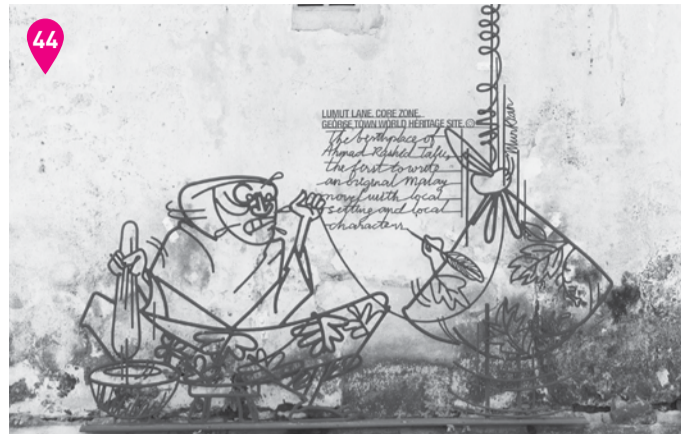 44
LUMUT LANE. CORE ZONE.
GEORGE TOWN WORLD HERITAGE SITE.
The birthplace of
Ahmad Rashid Talu,
the first to write
an original Malay
novel with local
setting and local
characters.